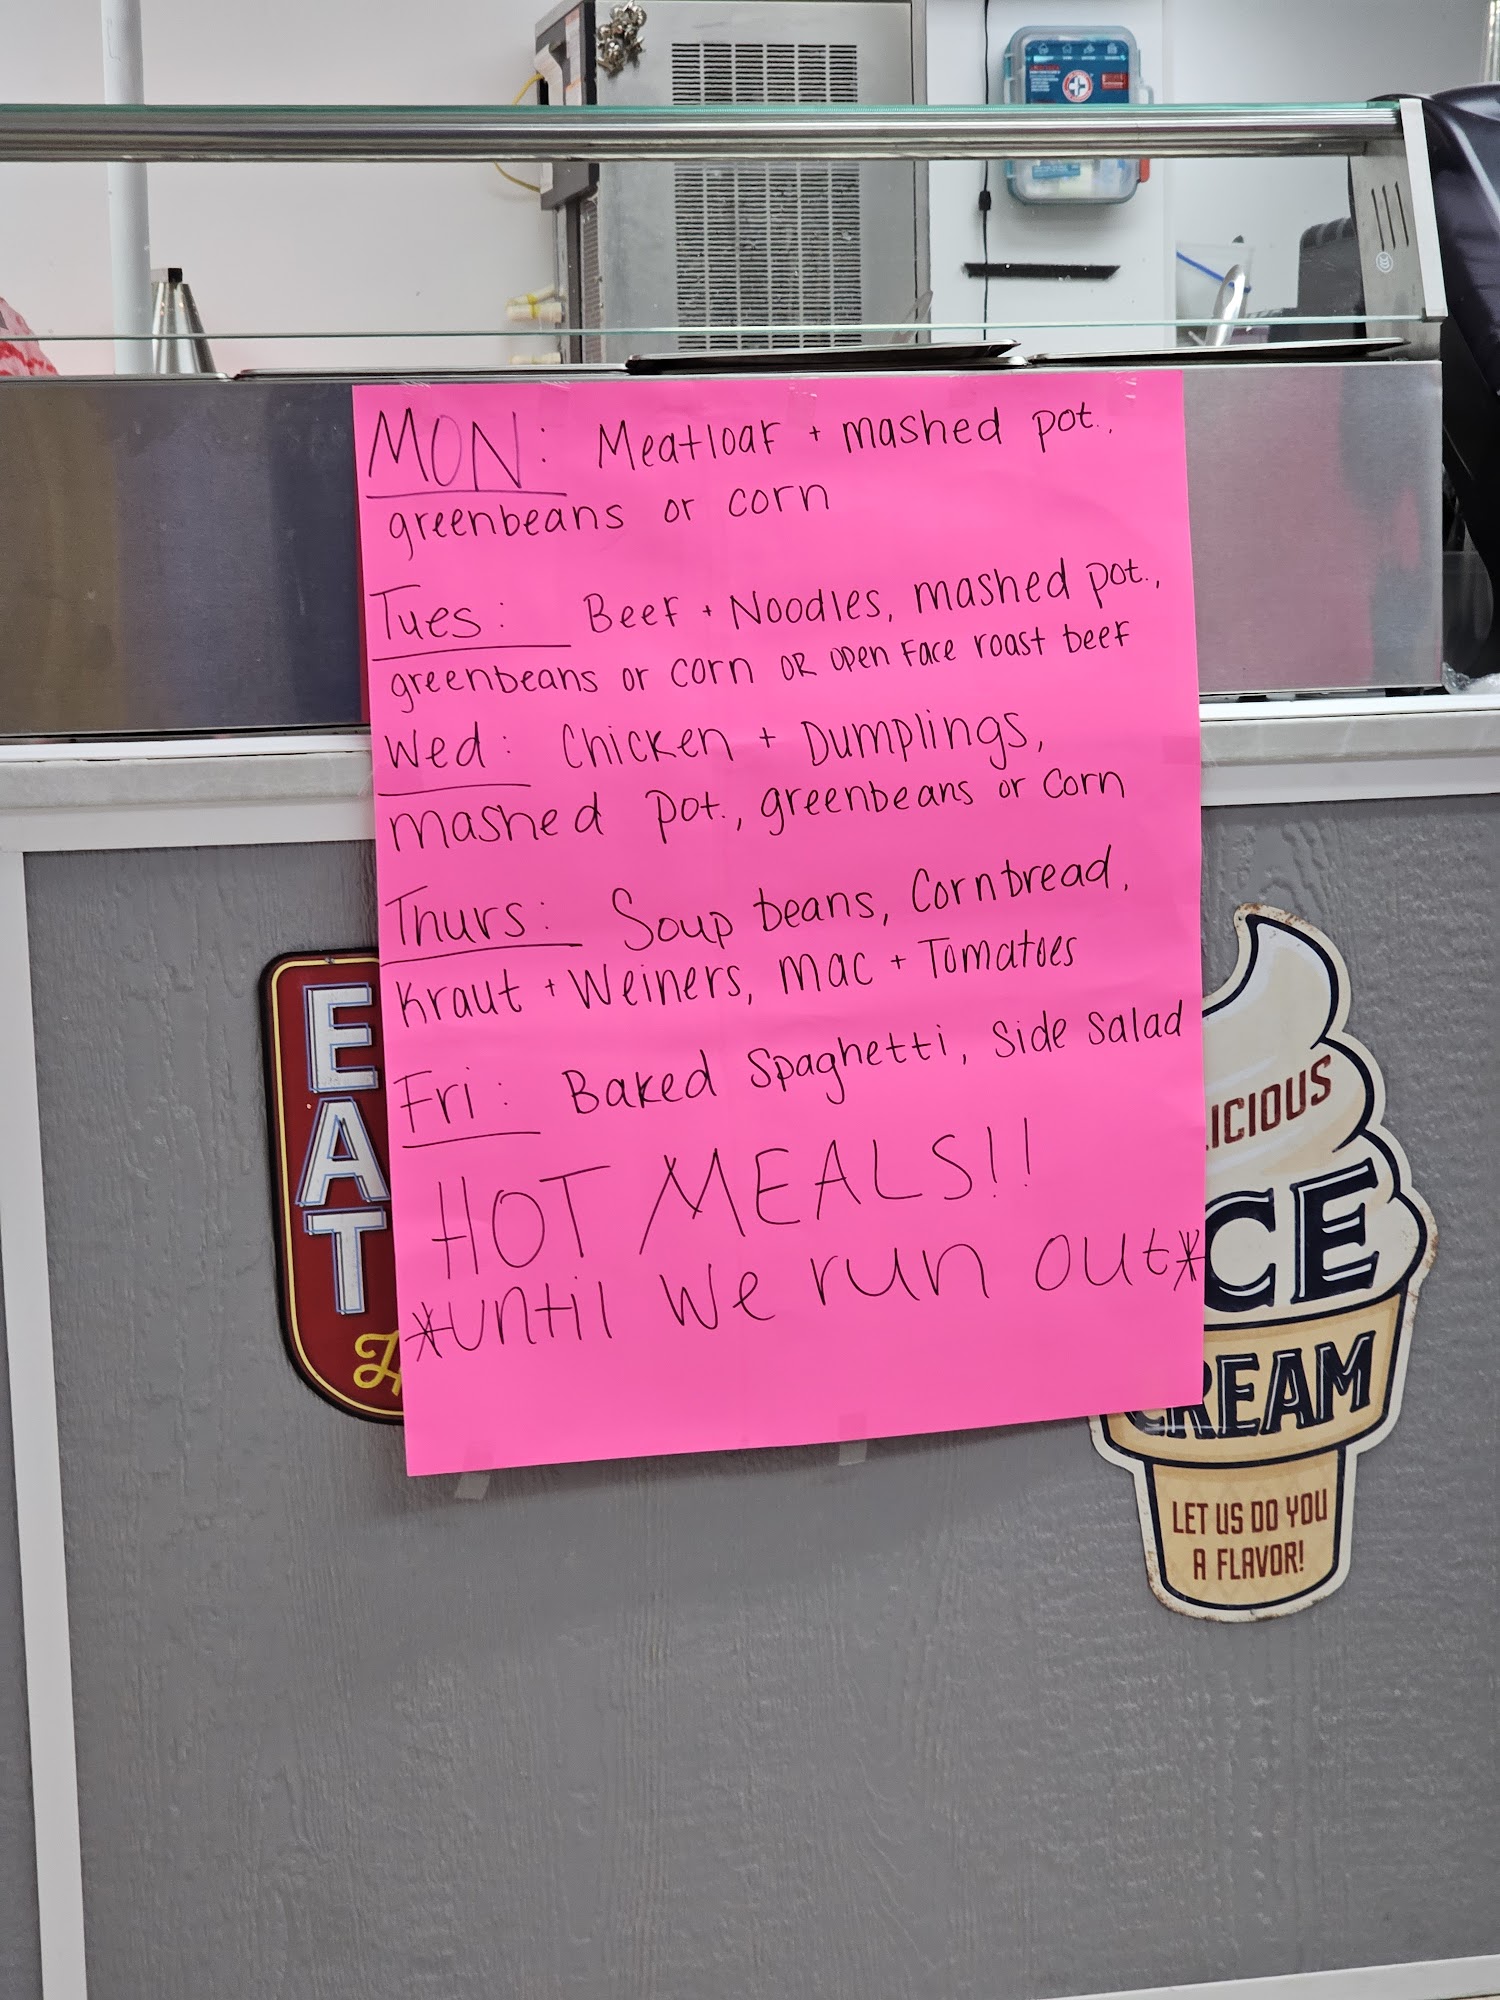 MON: Meatloaf + mashed pot.,
greenbeans or corn
Tues: Beef + Noodles, mashed pot.,
greenbeans or corn OR open face roast beef
Wed: Chicken + Dumplings,
mashed pot., greenbeans or corn
Thurs: Soup beans, Cornbread,
Kraut + Weiners, Mac + Tomatoes
Fri: Baked Spaghetti, Side Salad
HOT MEALS!!
*until we run out*
EAT
ICIOUS
ICE
CREAM
LET US DO YOU
A FLAVOR!